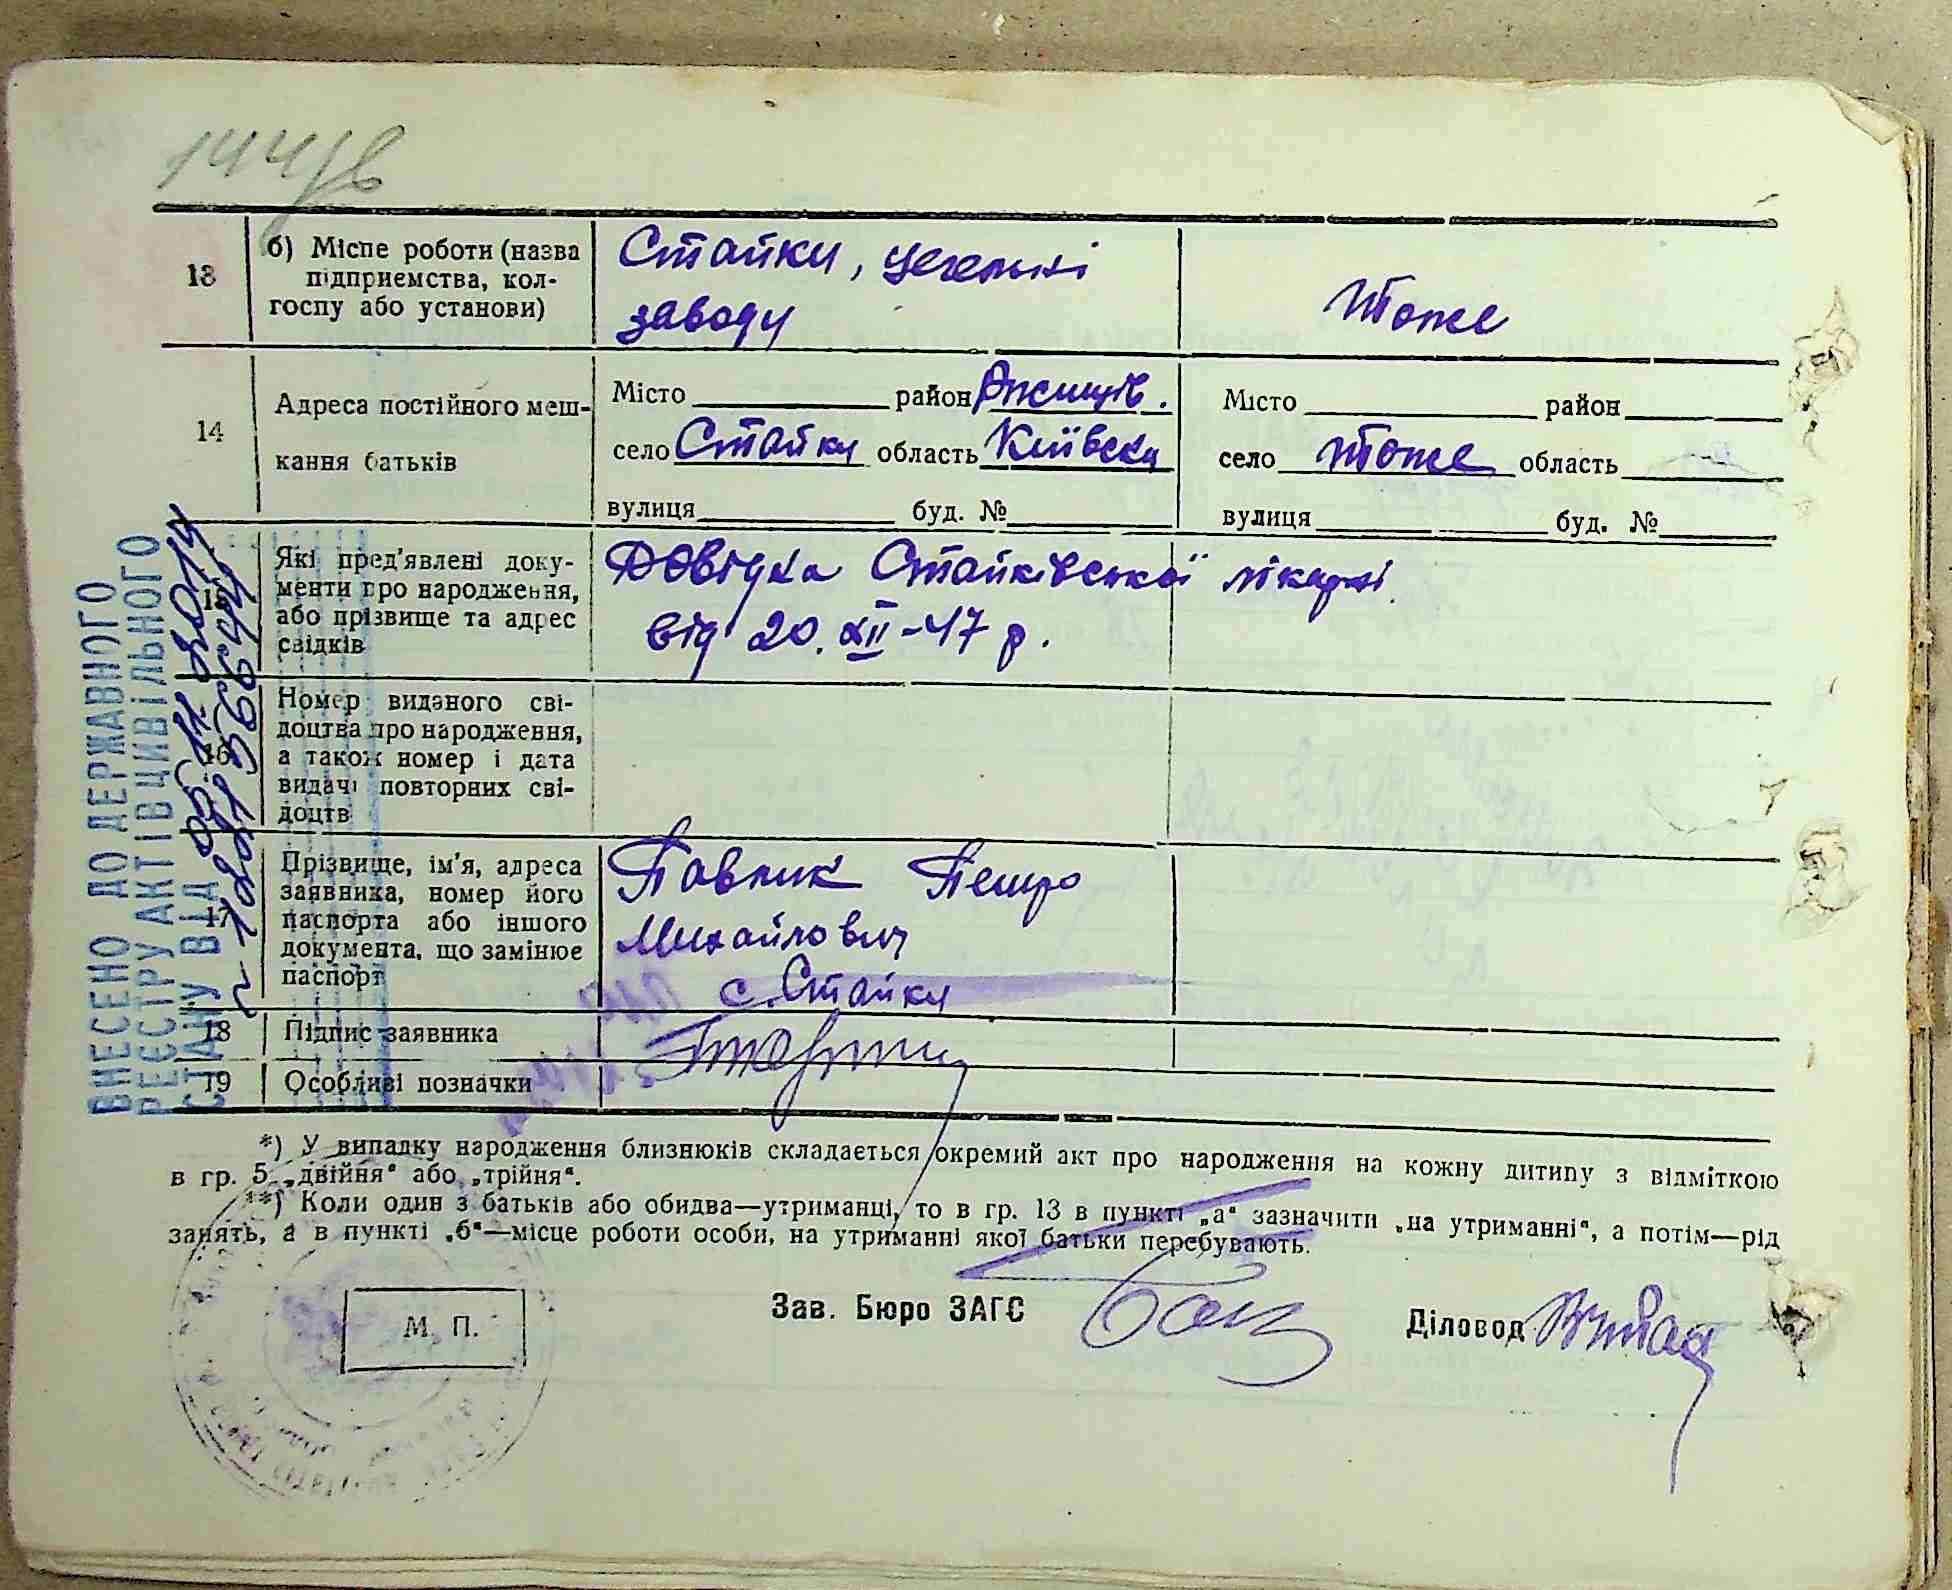 144/в
13
б) Місце роботи (назва
підприємства, кол-
госпу або установи)
Стайки, цегельні
заводу
тоже
14
Адреса постійного меш-
кання батьків
Місто район Ржищів.
село Стайки область Київська
вулиця буд. №
Місто район
село тоже область
вулиця буд. №
15
Які пред'явлені доку-
менти про народження,
або прізвище та адрес
свідків
Довідка Стайківської лікарні
від 20. XII-47 р.
16
Номер виданого сві-
доцтва про народження,
а також номер і дата
видачі повторних сві-
доцтв
17
Прізвище, ім'я, адреса
заявника, номер його
паспорта або іншого
документа, що замінює
паспорт
Павлик Петро
Михайлович
с. Стайки
18
Підпис заявника
19
Особливі позначки
ВНЕСЕНО ДО ДЕРЖАВНОГО
РЕЄСТРУ АКТІВ ЦИВІЛЬНОГО
СТАНУ ВІД
*) У випадку народження близнюків складається окремий акт про народження на кожну дитину з відміткою
в гр. 5 „двійня“ або „трійня“.
**) Коли один з батьків або обидва—утриманці, то в гр. 13 в пункті „а“ зазначити „на утриманні“, а потім—рід
занять, а в пункті „б“—місце роботи особи, на утриманні якої батьки перебувають.
М. П.
Зав. Бюро ЗАГС
Діловод